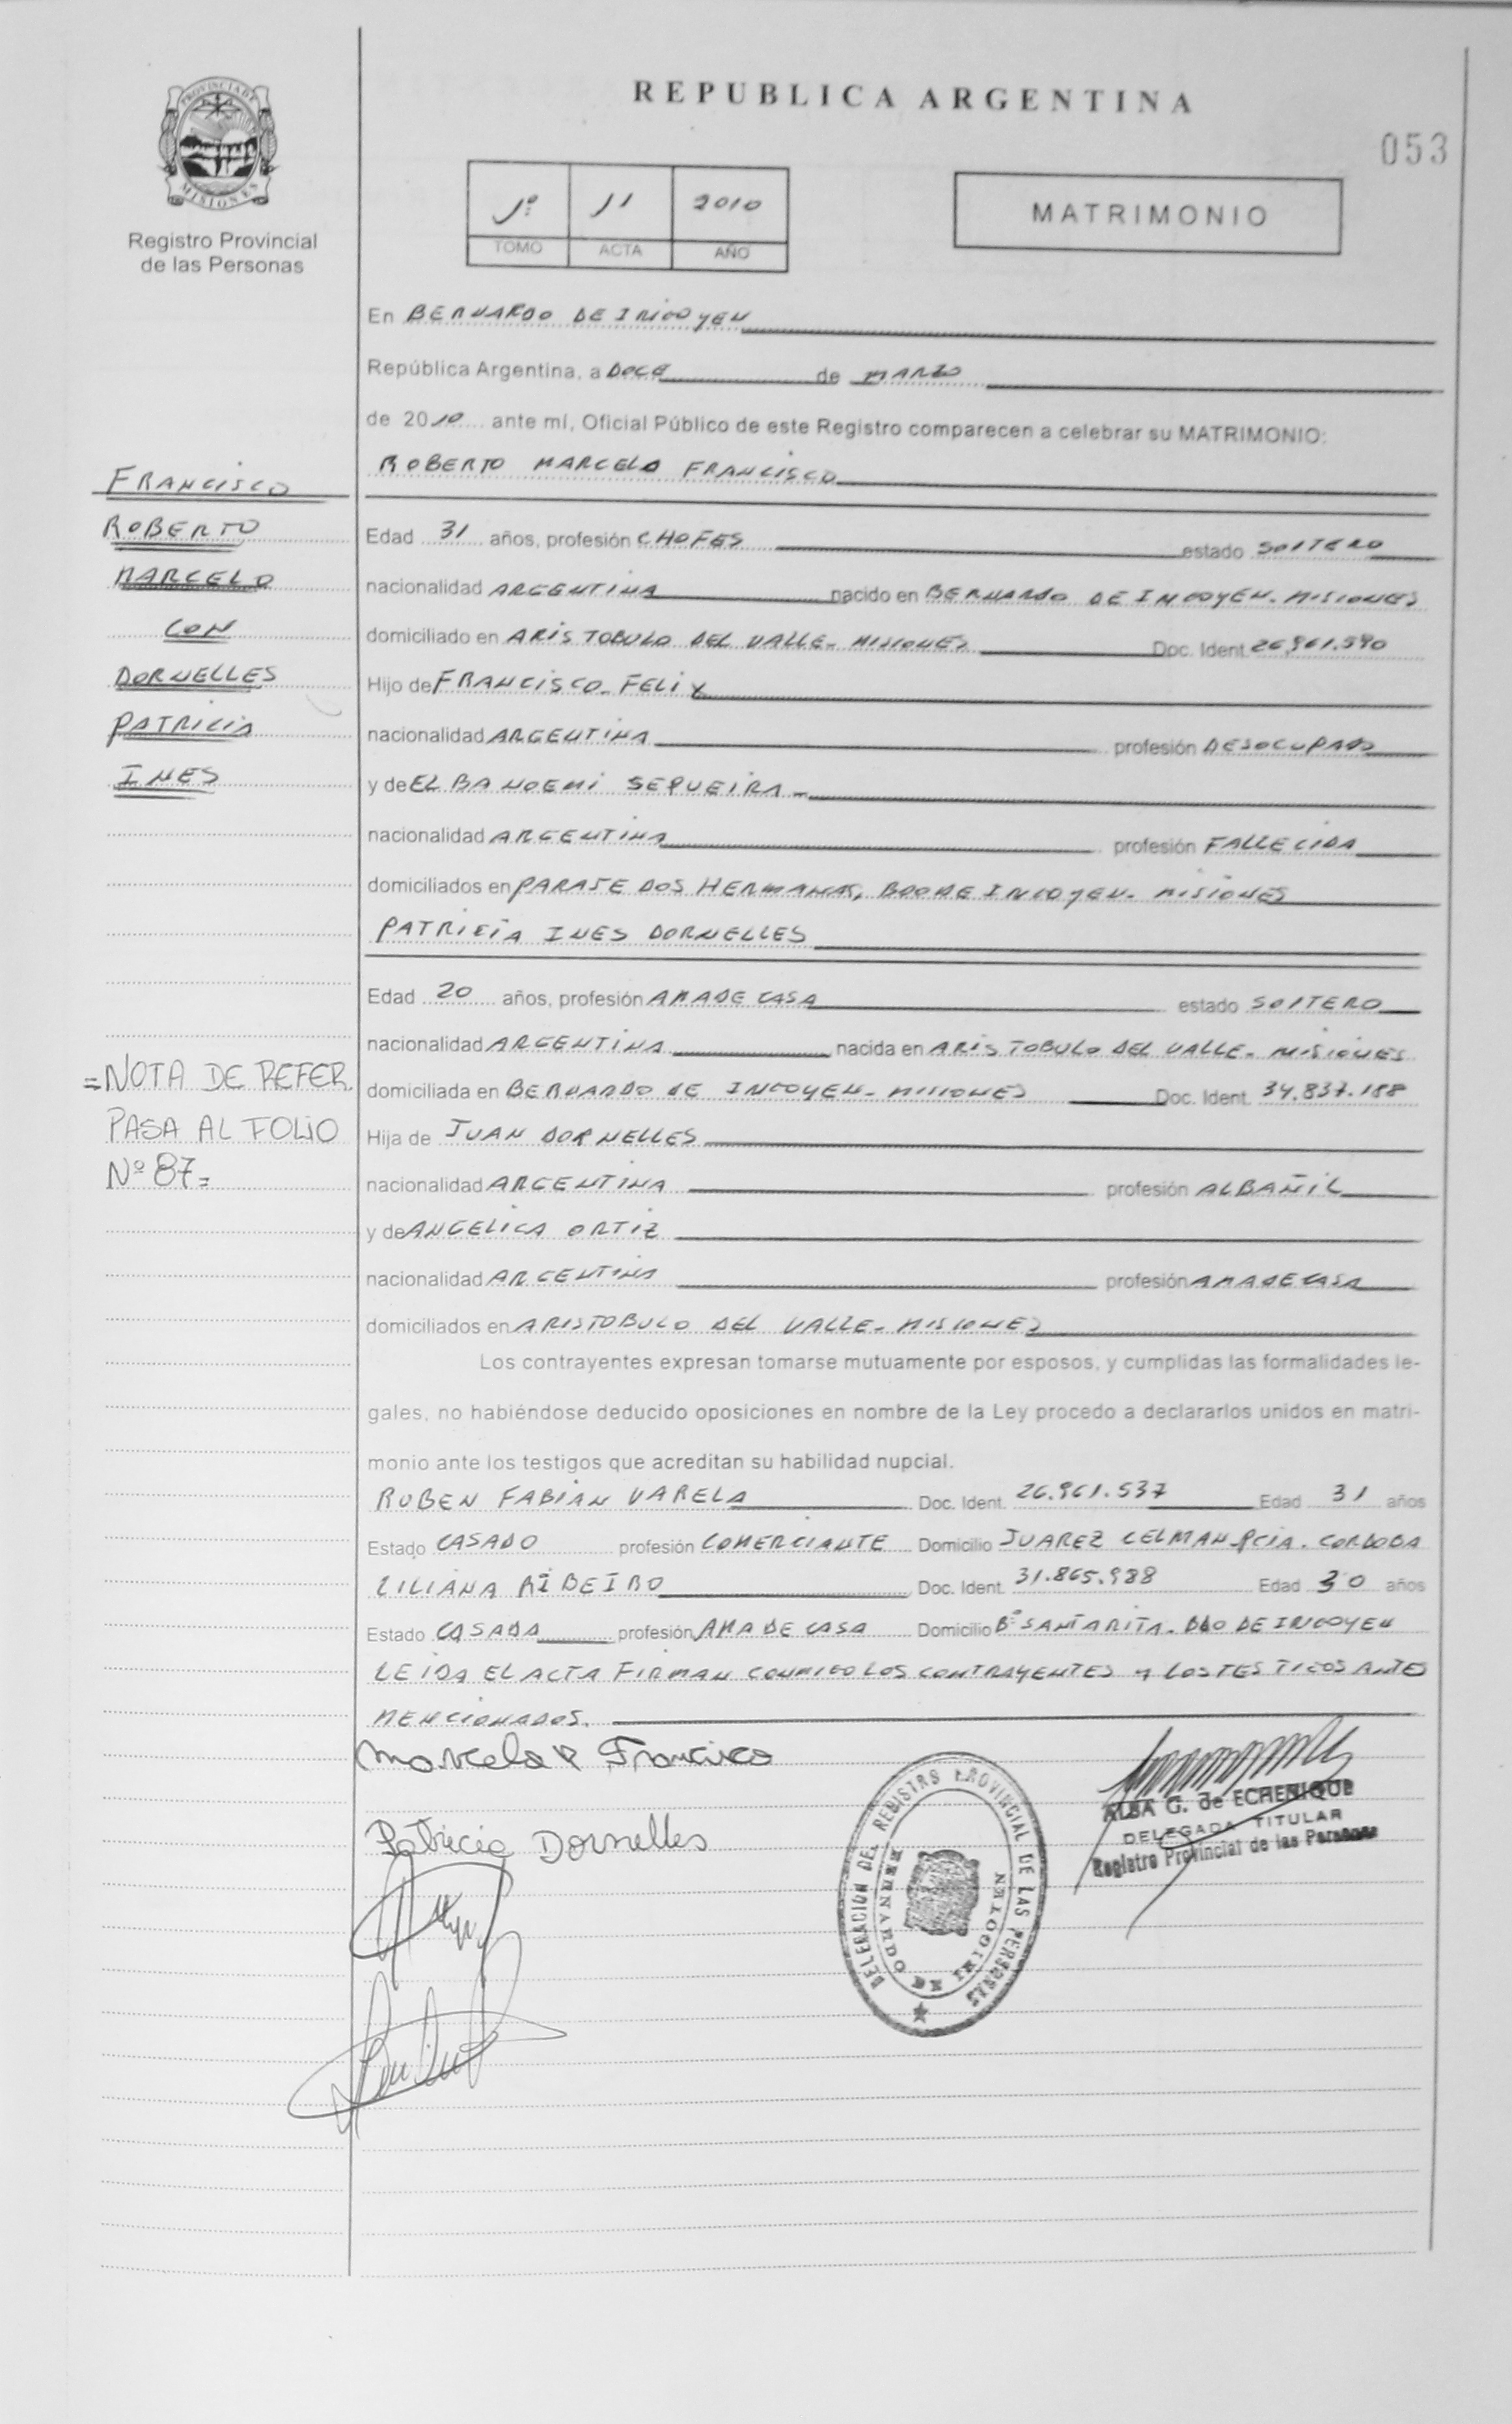 REPUBLICA ARGENTINA
053
PROVINCIA DE
MISIONES
Registro Provincial
de las Personas
1º 11 2010
TOMO ACTA AÑO
MATRIMONIO
En BERNARDO DE IRIGOYEN
República Argentina, a DOCE de MARZO
de 2010 ante mí, Oficial Público de este Registro comparecen a celebrar su MATRIMONIO:
ROBERTO MARCELO FRANCISCO
FRANCISCO
ROBERTO
MARCELO
CON
DORNELLES
PATRICIA
INES
Edad 31 años, profesión CHOFES estado SOLTERO
nacionalidad ARGENTINA nacido en BERNARDO DE IRIGOYEN - MISIONES
domiciliado en ARISTOBULO DEL VALLE - MISIONES Doc. Ident. 26.961.590
Hijo de FRANCISCO - FELIX
nacionalidad ARGENTINA profesión DESOCUPADO
y de ELBA NOEMI SEQUEIRA -
nacionalidad ARGENTINA profesión FALLECIDA
domiciliados en PARAJE DOS HERMANAS, BDO DE IRIGOYEN - MISIONES
PATRICIA INES DORNELLES
Edad 20 años, profesión AMA DE CASA estado SOLTERO
nacionalidad ARGENTINA nacida en ARISTOBULO DEL VALLE - MISIONES
domiciliada en BERNARDO DE IRIGOYEN - MISIONES Doc. Ident. 34.837.188
Hija de JUAN DORNELLES
nacionalidad ARGENTINA profesión ALBAÑIL
y de ANGELICA ORTIZ
nacionalidad ARGENTINA profesión AMA DE CASA
domiciliados en ARISTOBULO DEL VALLE - MISIONES
= NOTA DE REFER.
PASA AL FOLIO
Nº 87 =
Los contrayentes expresan tomarse mutuamente por esposos, y cumplidas las formalidades le-
gales, no habiéndose deducido oposiciones en nombre de la Ley procedo a declararlos unidos en matri-
monio ante los testigos que acreditan su habilidad nupcial.
RUBEN FABIAN VARELA Doc. Ident. 26.961.537 Edad 31 años
Estado CASADO profesión COMERCIANTE Domicilio JUAREZ CELMAN PCIA. CORDOBA
LILIANA RIBEIRO Doc. Ident. 31.865.988 Edad 30 años
Estado CASADA profesión AMA DE CASA Domicilio Bº SANTA RITA - BDO DE IRIGOYEN
LEIDA EL ACTA FIRMAN CONMIGO LOS CONTRAYENTES Y LOS TESTIGOS ANTES
MENCIONADOS.
Marcelo R Francisco
Patricia Dornelles
DELEGACION DEL REGISTRO PROVINCIAL DE LAS PERSONAS
BERNARDO DE IRIGOYEN
ALBA G. de ECHENIQUE
DELEGADA TITULAR
Registro Provincial de las Personas